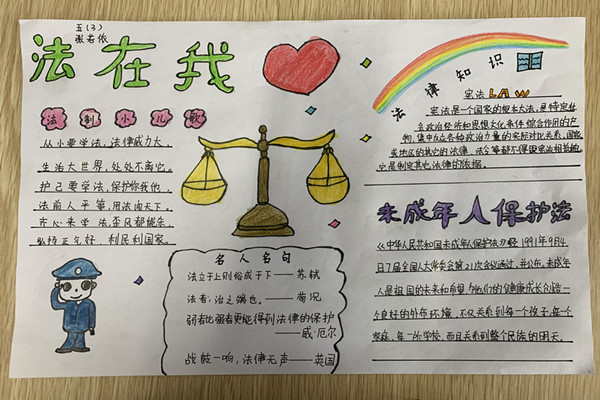 五(3)
张若依
法在我心
法制小儿歌
从小要学法,法律威力大,
生活大世界,处处不离它。
护己要学法,保护你我他,
法前人平等,用法闯天下。
齐心来学法,歪风都能杀。
弘扬正气好,利民利国家。
名人名句
法立于上则俗成于下——苏轼
法者,治之端也。——荀况
弱者比强者更能得到法律的保护
——威·厄尔
战鼓一响,法律无声——英国
法律知识
宪法LAW
宪法是一个国家的根本大法,是特定社
会政治经济和思想文化条件综合作用的产
物,集中反应各种政治力量的实际对比关系,国家
或地区的其它的法律、法令等都不得跟宪法相抵触,
它是制定其它法律的依据。
未成年人保护法
《中华人民共和国未成年人保护法》经1991年9月4
日7届全国人大常委会第21次会议通过,并公布。未成年
人是祖国的未来和希望,为他们的健康成长创造一
个良好的外布环境,不仅关系到每一个孩子、每一个
家庭、每一所学校,而且关系到整个民族的明天。